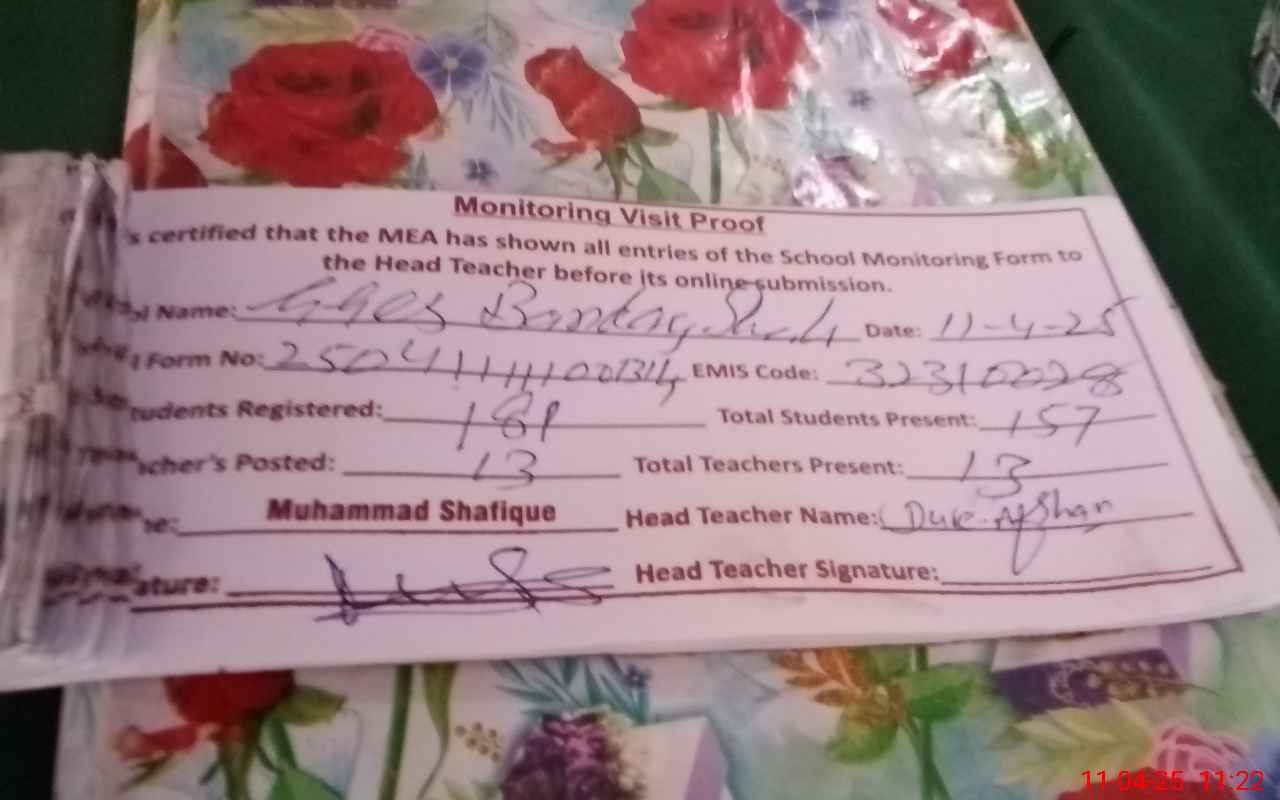 Monitoring Visit Proof
s certified that the MEA has shown all entries of the School Monitoring Form to
the Head Teacher before its online submission.
ol Name: GGES Date: 11-4-25
Form No: EMIS Code: 32310028
tudents Registered: 181 Total Students Present: 157
cher's Posted: 13 Total Teachers Present: 13
ne: Muhammad Shafique Head Teacher Name: Afshan
ature: Head Teacher Signature:
11-04-25 11:22